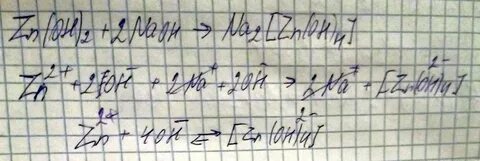 Zn(OH)₂ + 2NaOH → Na₂[Zn(OH)₄]
Zn²⁺ + 2OH⁻ + 2Na⁺ + 2OH⁻ → 2Na⁺ + [Zn(OH)₄]²⁻
Zn²⁺ + 4OH⁻ ⇄ [Zn(OH)₄]²⁻